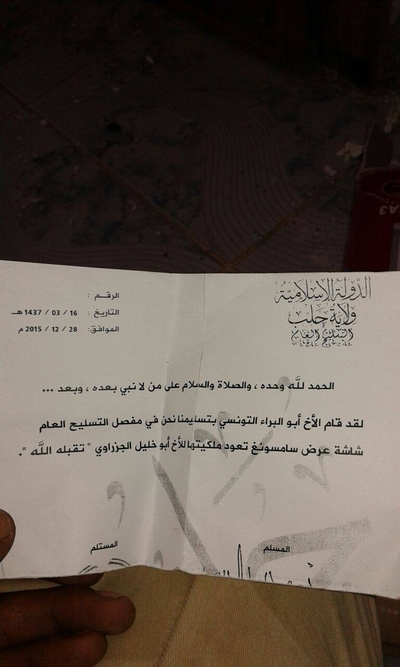 الدولة الإسلامية
ولاية حلب
التسليح العام
الرقم :
التاريخ : 16 / 03 / 1437 هـ
الموافق: 28 / 12 / 2015 م
الحمد لله وحده ، والصلاة والسلام على من لا نبي بعده ، وبعد ...
لقد قام الأخ أبو البراء التونسي بتسليمنا نحن في مفصل التسليح العام
شاشة عرض سامسونغ تعود ملكيتها للأخ أبو خليل الجزراوي " تقبله الله ".
المسلم
المستلم
A3